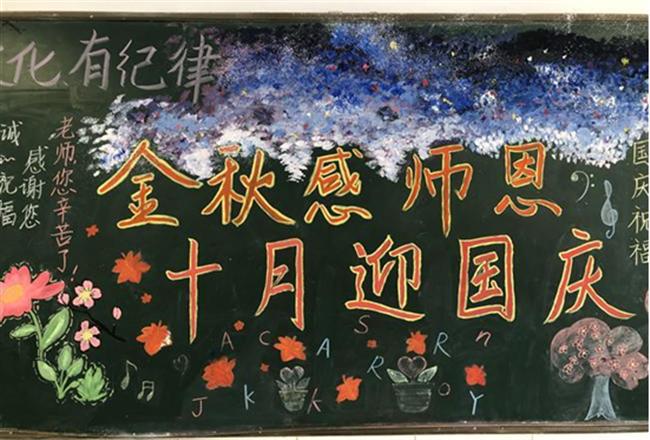 化有纪律
金秋感师恩
十月迎国庆
老师您辛苦了!
感谢您
诚心祝福
国庆祝福
A C A S R n
J K K R o Y